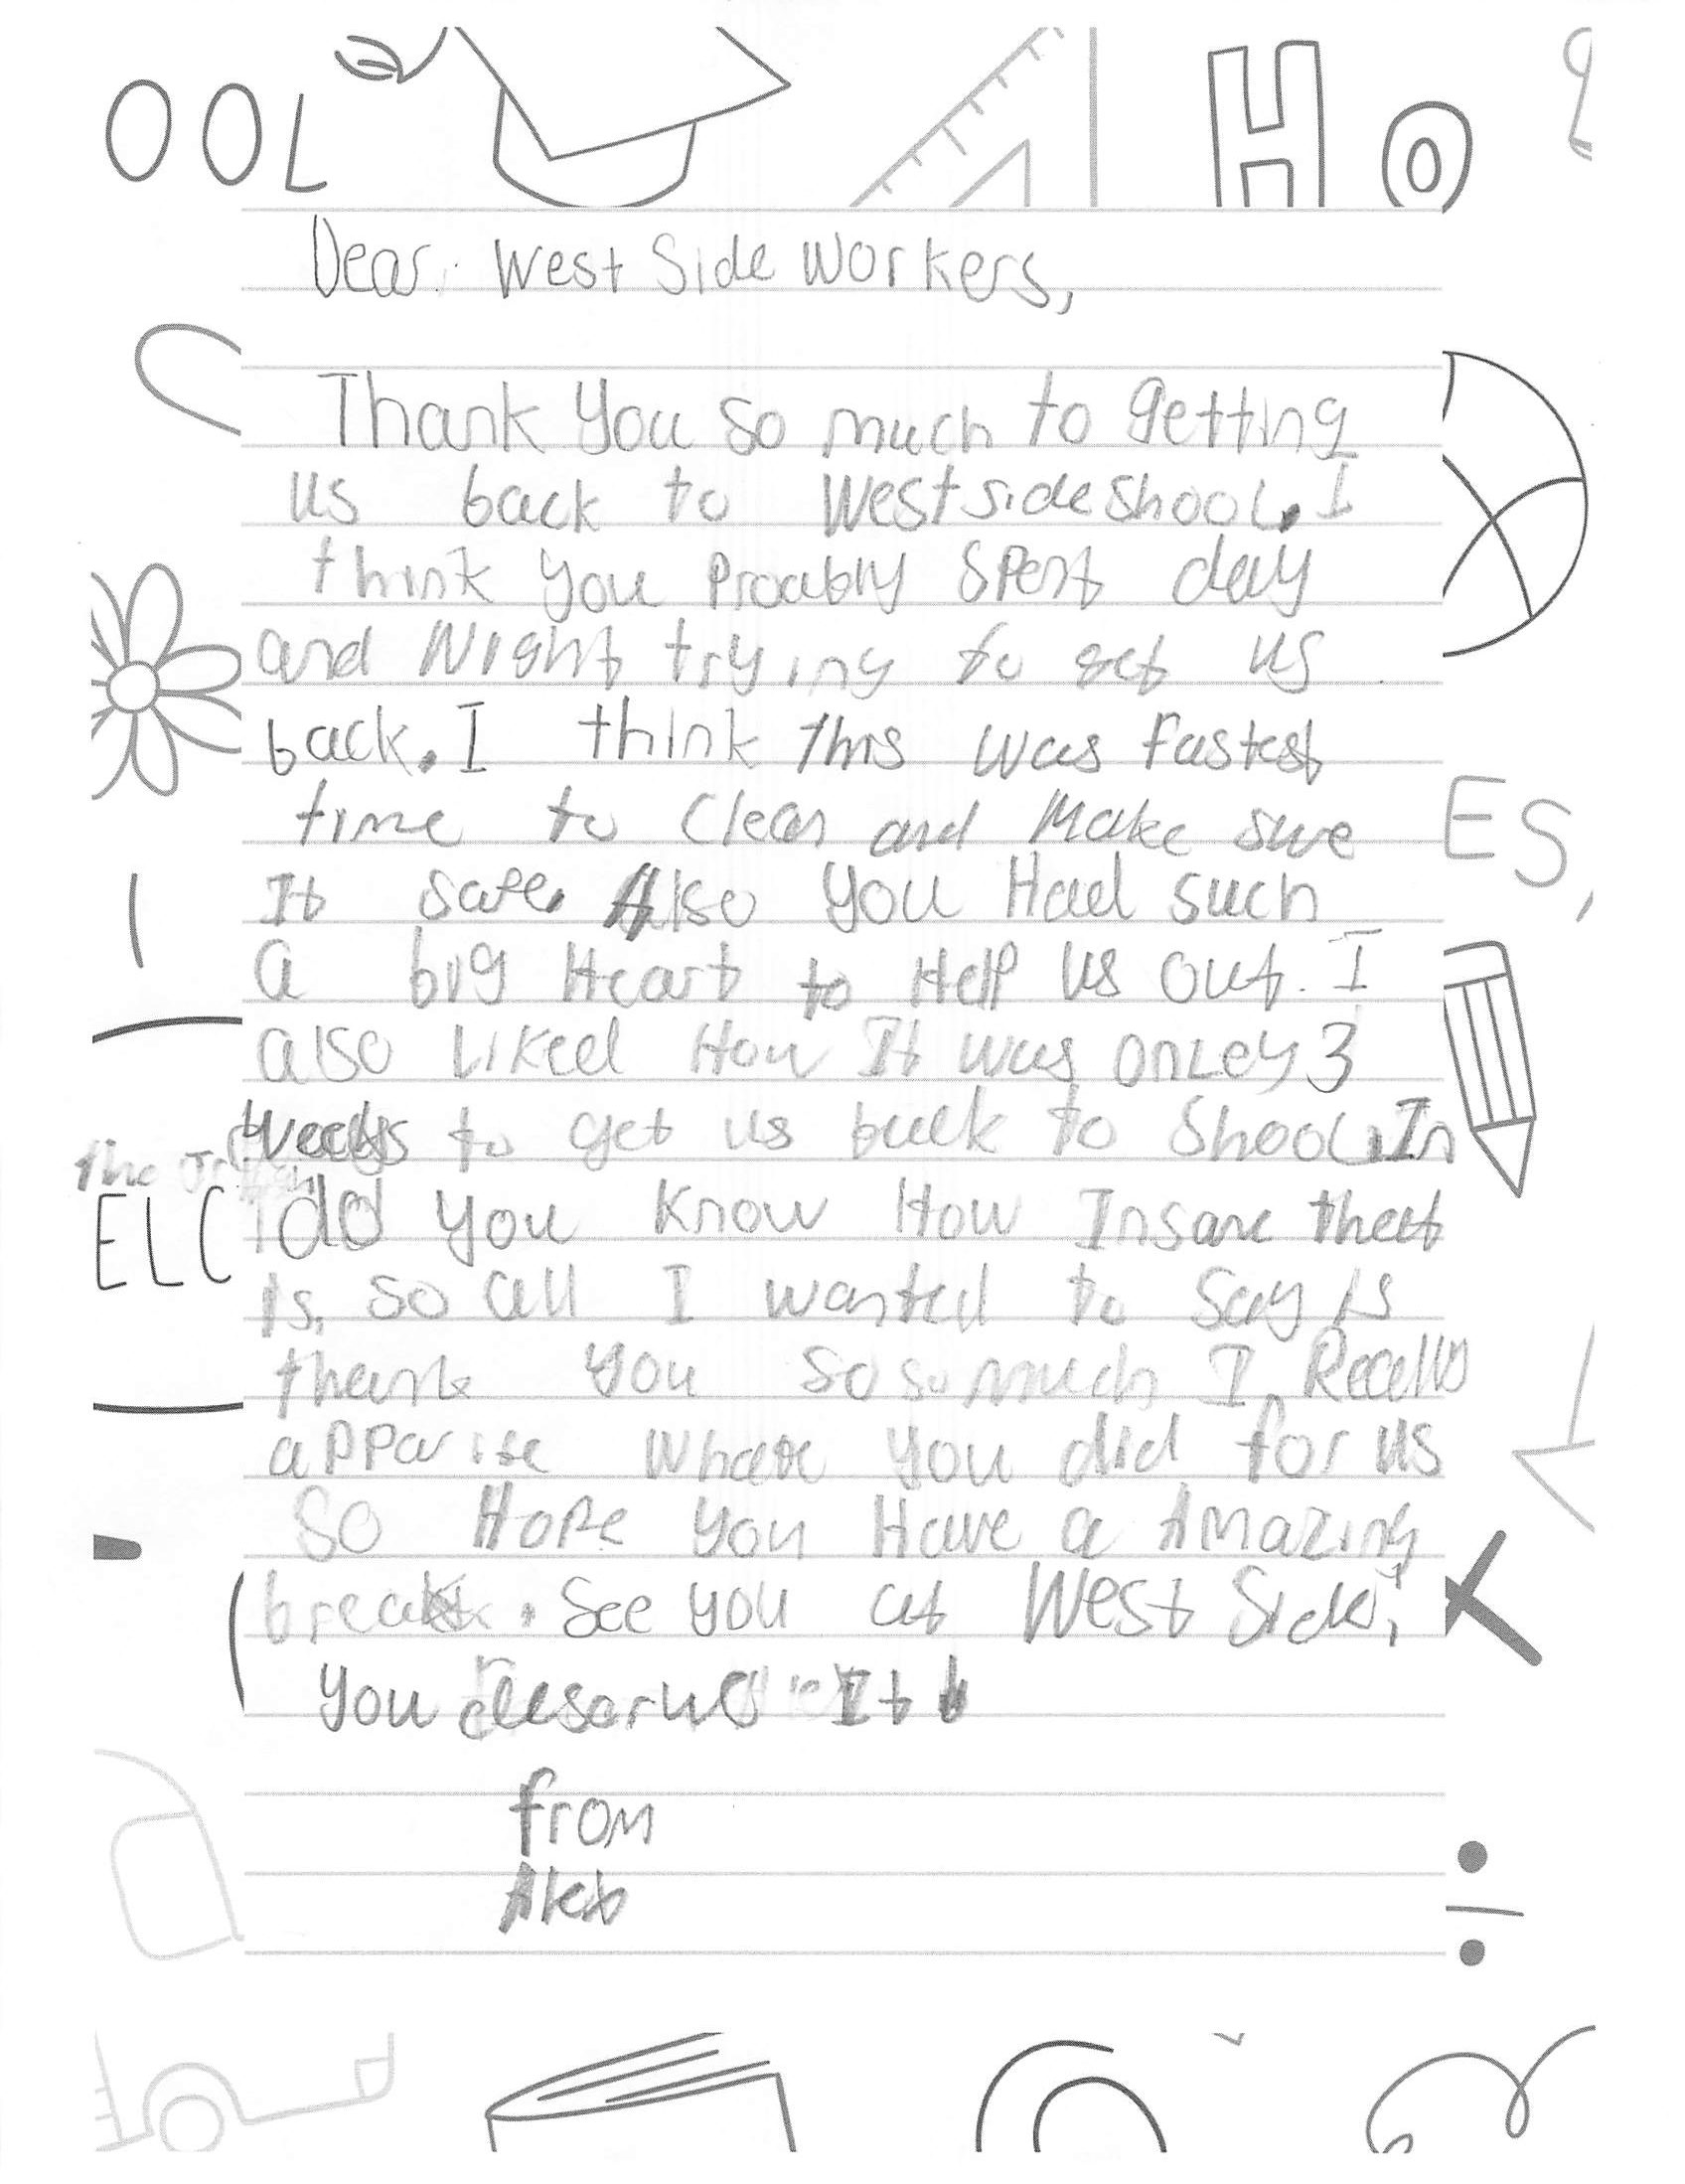 OOL
H O
Dear: West Side Workers,
Thank You so much to getting
us back to Westside Shool. I
think you Proably Spent day
and Night trying to get us
back. I think this was fastest
time to Clean and Make sure
It safe. Also you Had such
a big Heart to Help us out. I
also Liked How It was onLey 3
weeks to get us back to Shool. In
the
ELC
do you know How Insane that
Is, so all I wanted to say is
thank you so so much I Really
apparite What you did for us
so Hope you Have a Amazing
break. See you at West Side,
you deserve It
from
ES,